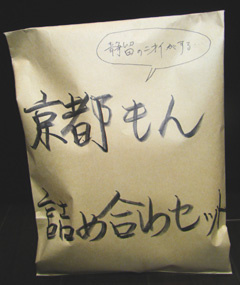 静留のニオイがする
京都もん
詰め合わセット